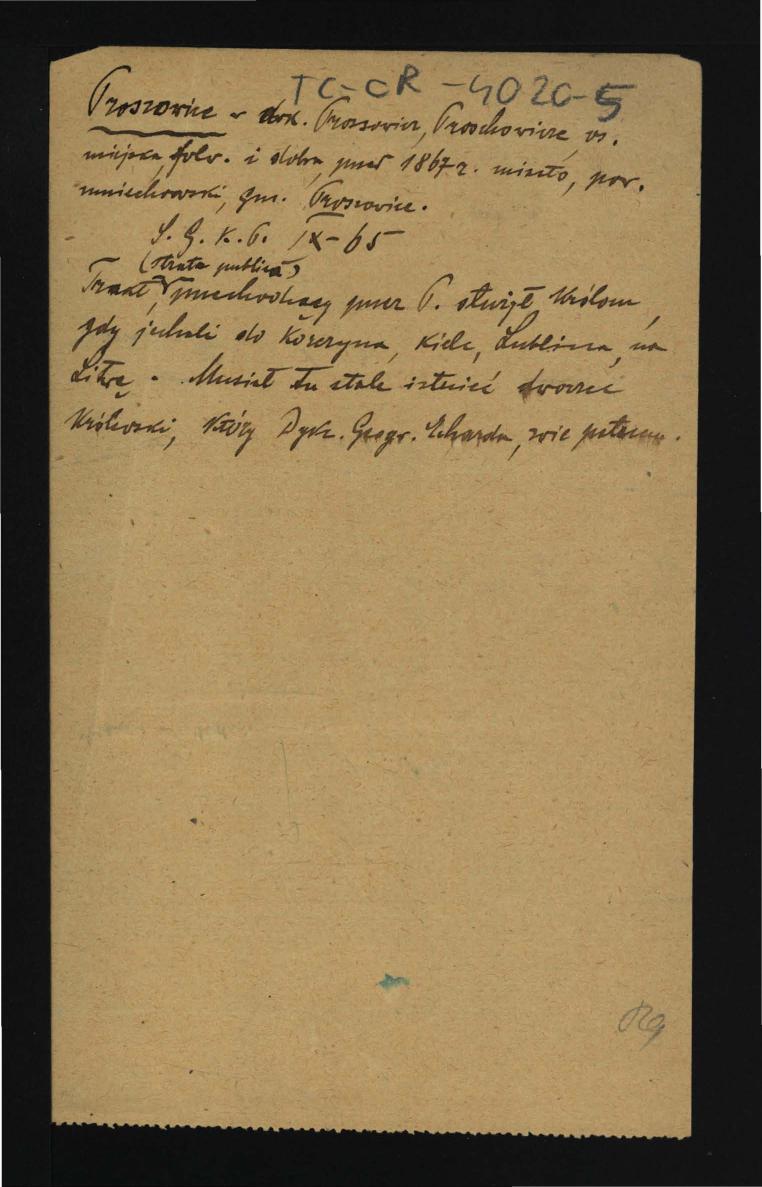 TC-CR-4020-5
Proszowice w dok. Prossovicz, Proschowicze, os.
miejska, folw. i dobra, przed 1867 r. miasto, pow.
miechowski, gm. Proszowice.
S. G. K. P. IX-65
(strata publica)
Trakt, przechodzący przez P. służył królom,
gdy jechali do Korczyna, Kielc, Lublina, na
Litwę. Musiał tu stale istnieć dworzec
królewski, który Dykc. Geogr. Echarda, zwie
Rg